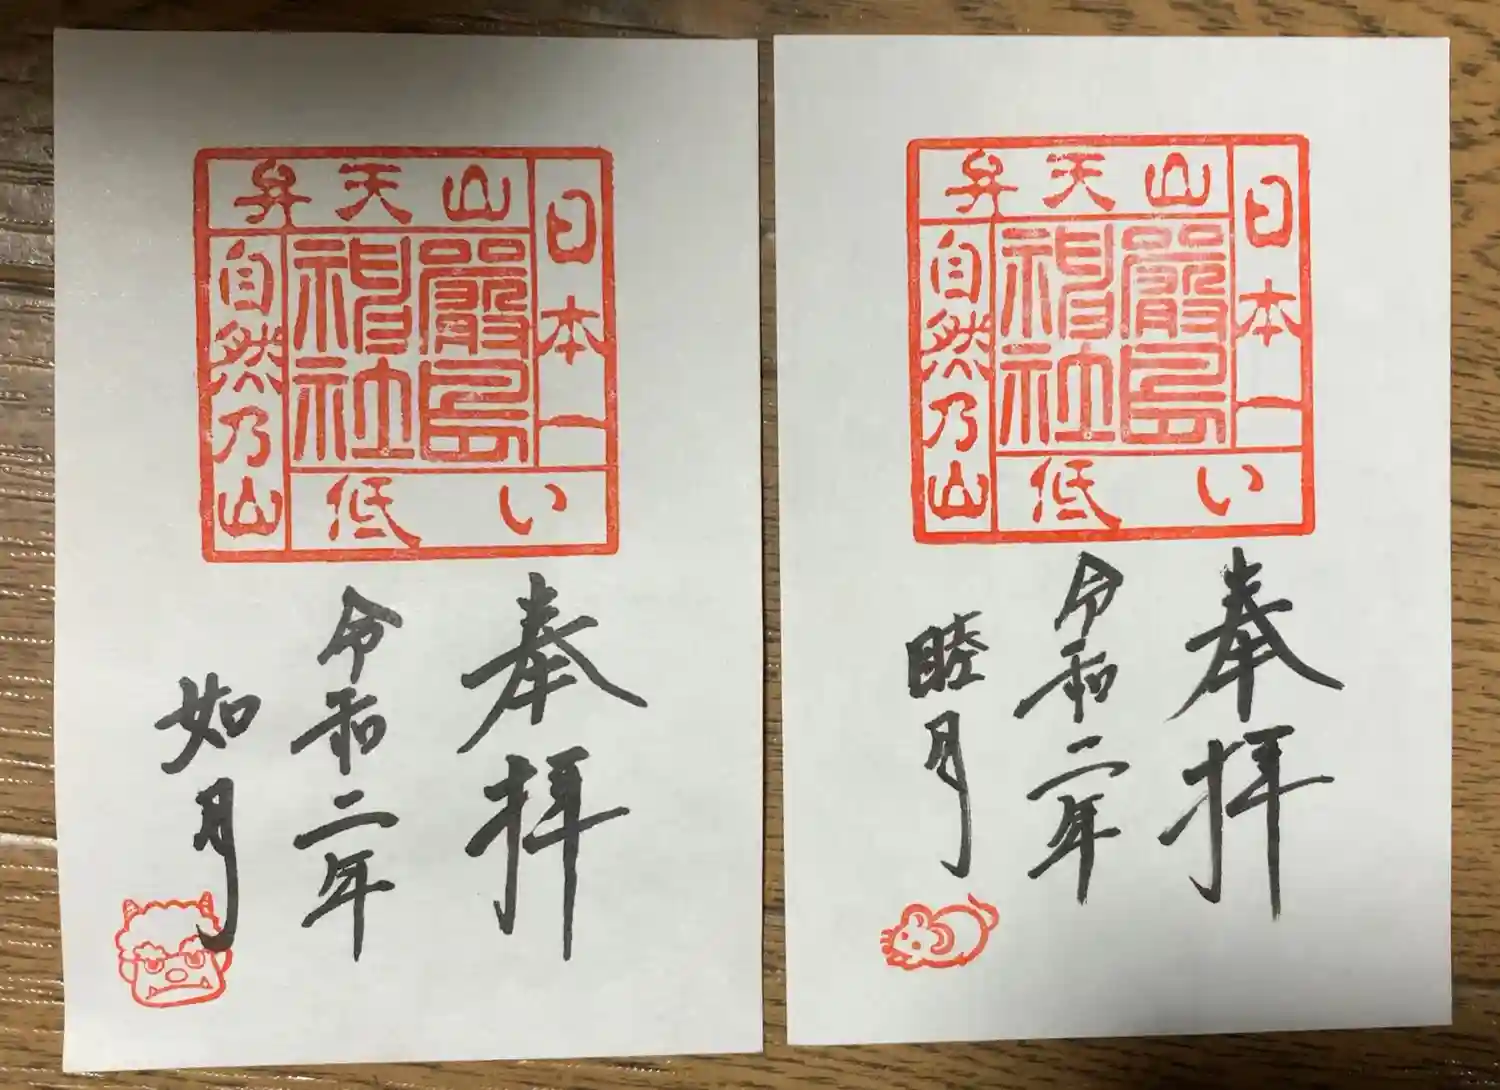 日本一
低い
山天弁
自然乃山
嚴島
神社
奉拝
令和二年
如月
日本一
低い
山天弁
自然乃山
嚴島
神社
奉拝
令和二年
睦月